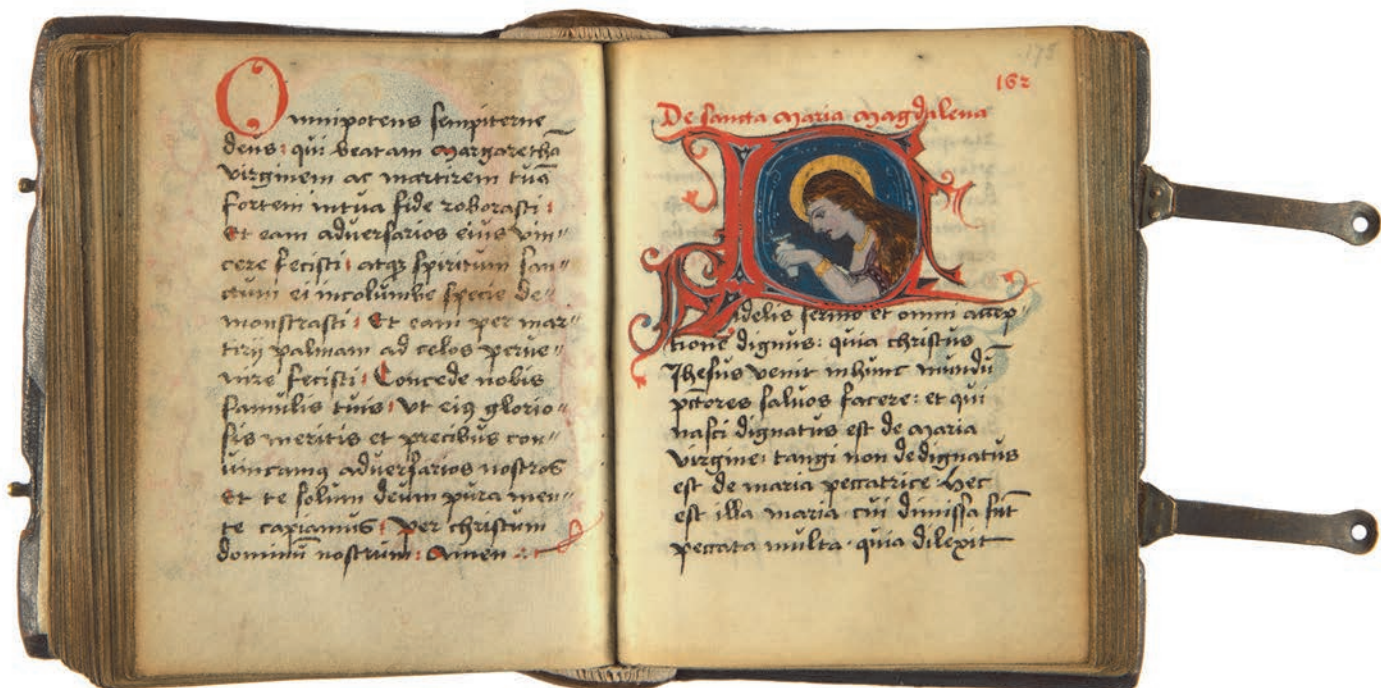 Omnipotens sempiterne
deus: qui beatam Margarethā
virginem ac martirem tuā
fortem in tua fide roborasti:
Et eam adversarios eius vin„
cere fecisti: atq; spiritum san„
ctum ei in columbe specie de„
monstrasti: Et eam per mar„
tirij palmam ad celos perve„
nire fecisti: Concede nobis
famulis tuis: Vt eiꝰ glorio„
sis meritis et precibus con„
uincamꝰ adversarios nostros
Et te solum deum pura men„
te capiamus: Per christum
dominū nostrum: Amen
178
162
De sancta Maria Magdalena
Fidelis sermo et omni accep„
tione dignus: quia christus
Jhesus venit in hunc mundū
pctores saluos facere: et qui
nasci dignatus est de Maria
virgine: tangi non dedignatus
est de maria peccatrice. Hec
est illa maria cui dimissa sūt
peccata multa. quia dilexit